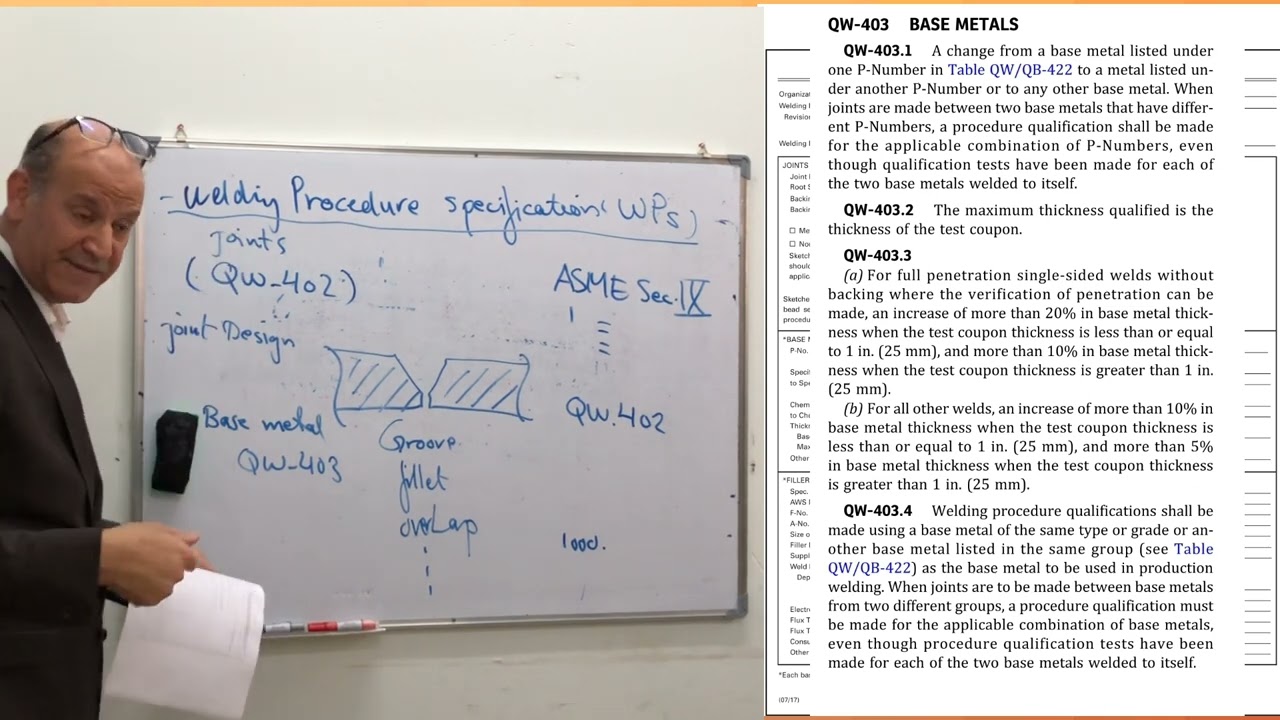 - Welding Procedure specifications (WPS) -
joints
(QW-402)
ASME Sec. IX
joint Design
QW.402
Base metal
QW-403
Groove
fillet
overLap
QW-403 BASE METALS
QW-403.1 A change from a base metal listed under
one P-Number in Table QW/QB-422 to a metal listed un-
der another P-Number or to any other base metal. When
joints are made between two base metals that have differ-
ent P-Numbers, a procedure qualification shall be made
for the applicable combination of P-Numbers, even
though qualification tests have been made for each of
the two base metals welded to itself.
QW-403.2 The maximum thickness qualified is the
thickness of the test coupon.
QW-403.3
(a) For full penetration single-sided welds without
backing where the verification of penetration can be
made, an increase of more than 20% in base metal thick-
ness when the test coupon thickness is less than or equal
to 1 in. (25 mm), and more than 10% in base metal thick-
ness when the test coupon thickness is greater than 1 in.
(25 mm).
(b) For all other welds, an increase of more than 10% in
base metal thickness when the test coupon thickness is
less than or equal to 1 in. (25 mm), and more than 5%
in base metal thickness when the test coupon thickness
is greater than 1 in. (25 mm).
QW-403.4 Welding procedure qualifications shall be
made using a base metal of the same type or grade or an-
other base metal listed in the same group (see Table
QW/QB-422) as the base metal to be used in production
welding. When joints are to be made between base metals
from two different groups, a procedure qualification must
be made for the applicable combination of base metals,
even though procedure qualification tests have been
made for each of the two base metals welded to itself.
Welding
JOINTS
Joint
Root
*BASE
P-No.
to
Other
*FILLER
Spec.
AWS
F-No.
A-No.
Size
Filler
Weld
Flux
Flux
Other
*Each
(07/17)